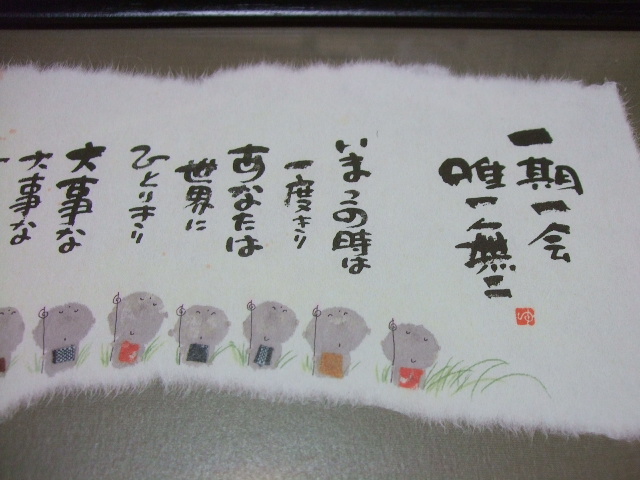 一期一会
唯一無二
いまこの時は
一度きり
あなたは
世界に
ひとりきり
大事な
大事な